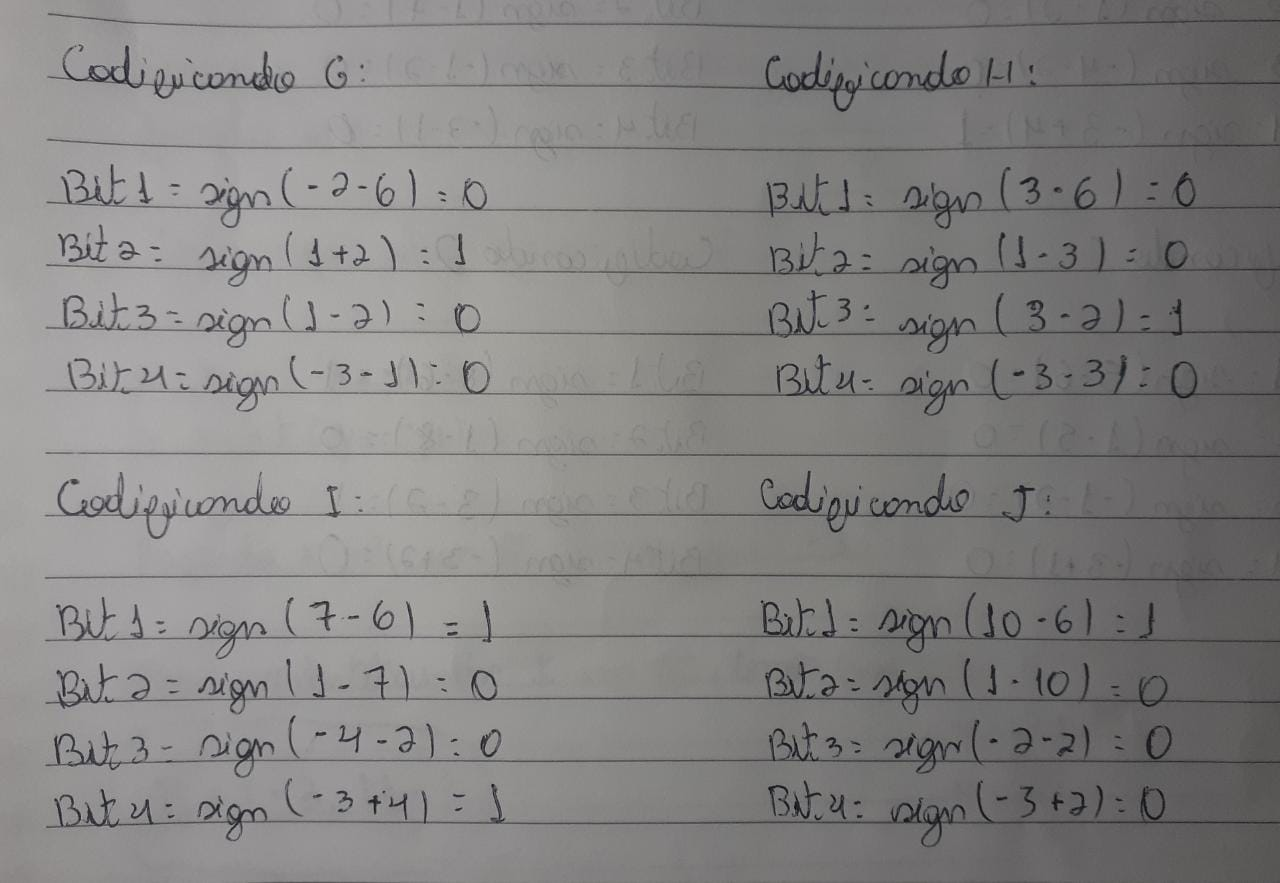 Codificando G:
Bit 1 = sign (-2-6) = 0
Bit 2 = sign (1+2) = 1
Bit 3 = sign (1-2) = 0
Bit 4 = sign (-3-1) = 0
Codificando H:
Bit 1 = sign (3-6) = 0
Bit 2 = sign (1-3) = 0
Bit 3 = sign (3-2) = 1
Bit 4 = sign (-3-3) = 0
Codificando I:
Bit 1 = sign (7-6) = 1
Bit 2 = sign (1-7) = 0
Bit 3 = sign (-4-2) = 0
Bit 4 = sign (-3+4) = 1
Codificando J:
Bit 1 = sign (10-6) = 1
Bit 2 = sign (1-10) = 0
Bit 3 = sign (-2-2) = 0
Bit 4 = sign (-3+2) = 0